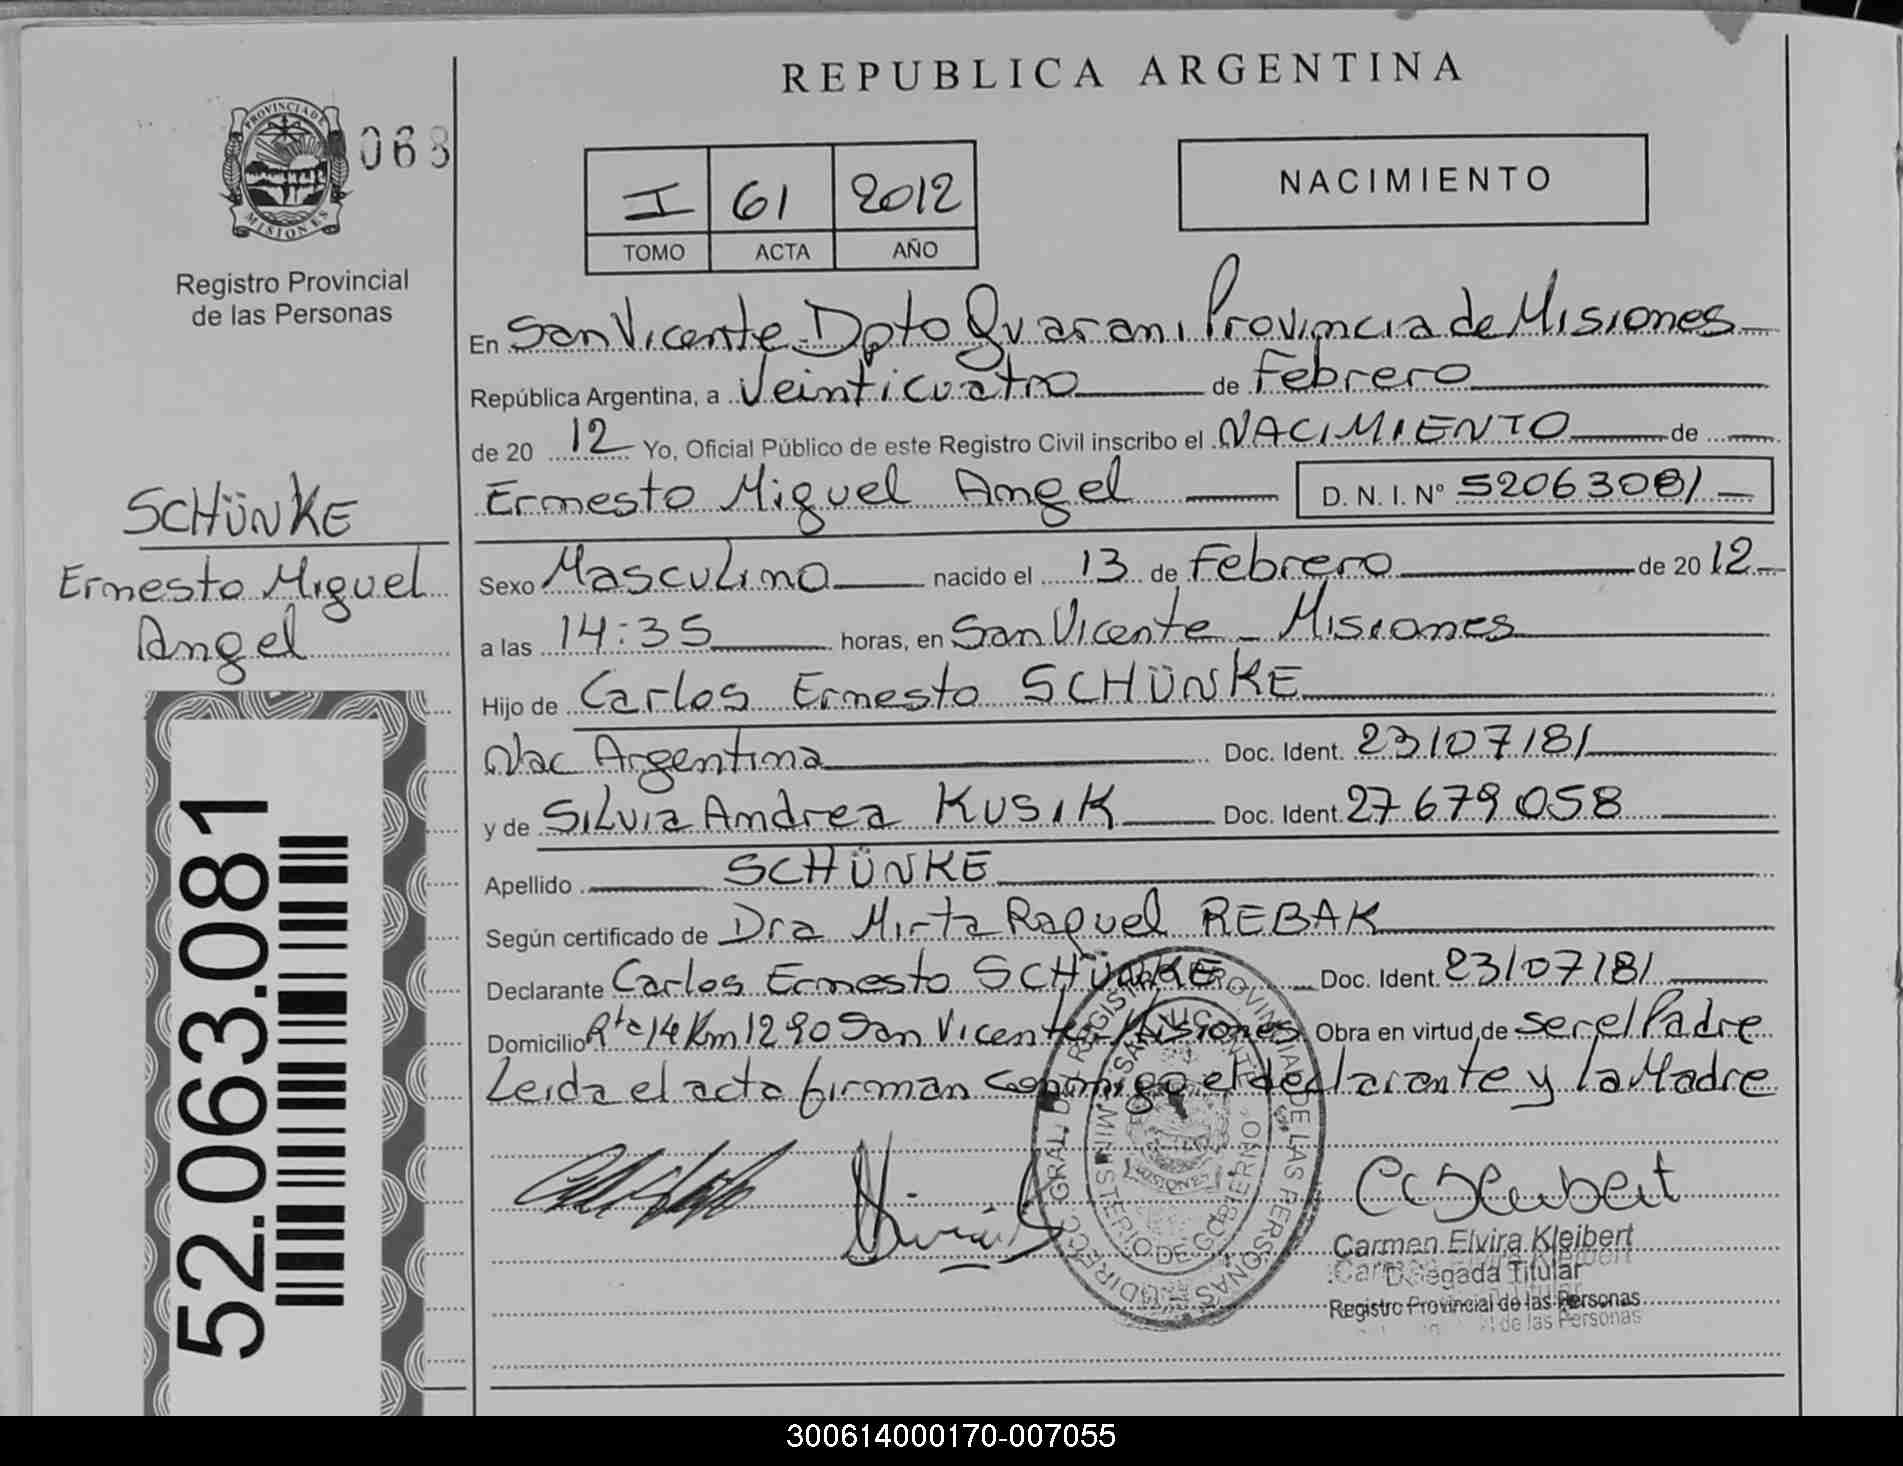 REPUBLICA ARGENTINA
PROVINCIA DE
MISIONES
068
Registro Provincial
de las Personas
I 61 2012
TOMO ACTA AÑO
NACIMIENTO
En San Vicente Dpto Guarani Provincia de Misiones
República Argentina, a Veinticuatro de Febrero
de 20 12 Yo, Oficial Público de este Registro Civil inscribo el NACIMIENTO de
Ernesto Miguel Angel D. N. I. N° 52063081
SCHÜNKE
Ernesto Miguel
Angel
Sexo Masculino nacido el 13 de Febrero de 20 12
a las 14:35 horas, en San Vicente - Misiones
Hijo de Carlos Ernesto SCHÜNKE
Nac Argentina Doc. Ident. 23107181
y de Silvia Andrea KUSIK Doc. Ident. 27679058
Apellido SCHÜNKE
Según certificado de Dra Mirta Raquel REBAK
Declarante Carlos Ernesto SCHÜNKE Doc. Ident. 23107181
Domicilio Rta 14 Km 1290 San Vicente Misiones Obra en virtud de ser el Padre
Leida el acta firman conmigo el declarante y la Madre
52.063.081
Carmen Elvira Kleibert
Delegada Titular
Registro Provincial de las Personas
300614000170-007055